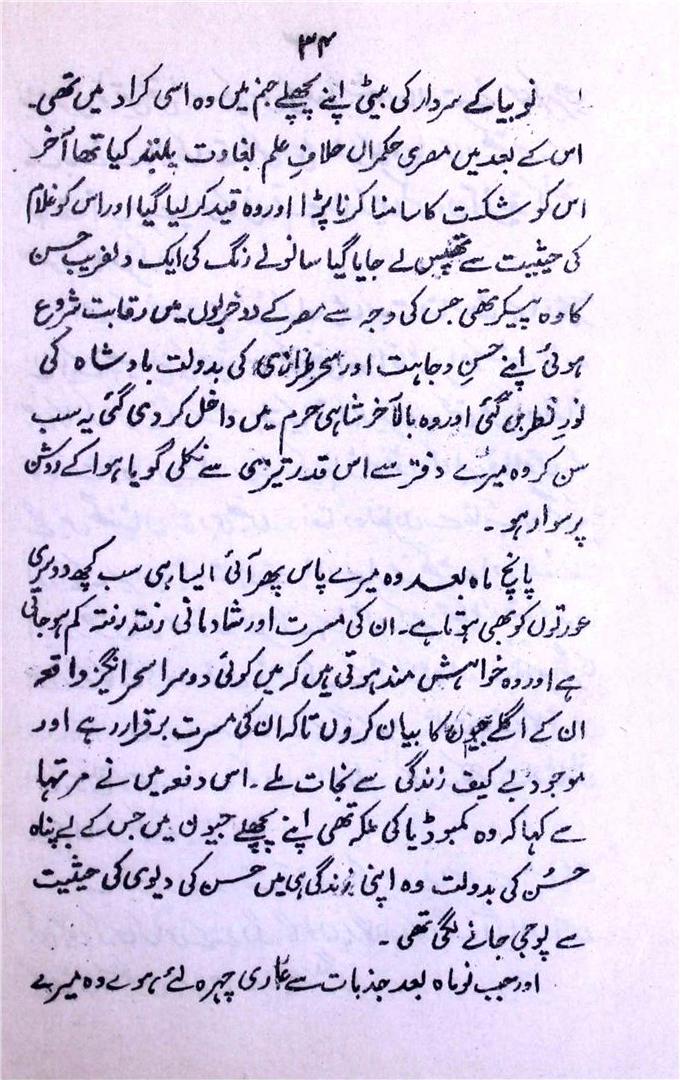 ۳۴
نوبیا کے سردار کی بیٹی اپنے پچھلے جنم میں وہ اسی کراد میں تھی۔
اس کے بعد میں مصری حکمراں خلافِ علم بغاوت بلند کیا تھا آخر
اس کو شکست کا سامنا کرنا پڑا اور وہ قید کر لیا گیا اور اس کو غلام
کی حیثیت سے تھیبس لے جایا گیا سانولے رنگ کی ایک دلفریب حسن
کا وہ پیکر تھی جس کی وجہ سے مصر کے دو جرنلوں میں رقابت شروع
ہوئی اپنے حسن وجاہت اور سحر طرازی کی بدولت بادشاہ کی
نورِ نظر بن گئی اور وہ بالآخر شاہی حرم میں داخل کر دی گئی یہ سب
سن کر وہ میرے دفتر سے اس قدر تیزی سے نکلی گویا ہوا کے دوش
پر سوار ہو۔
پانچ ماہ بعد وہ میرے پاس پھر آئی ایسا ہی سب کچھ دوسری
عورتوں کو بھی ہوتا ہے۔ ان کی مسرت اور شادمانی رفتہ رفتہ کم ہو جاتی
ہے اور وہ خواہش مند ہوتی ہیں کہ میں کوئی دوسرا سحر انگیز واقعہ
ان کے اگلے جیون کا بیان کروں تاکہ ان کی مسرت برقرار رہے اور
موجود بے کیف زندگی سے نجات ملے۔ اسی دفعہ میں نے مرتہا
سے کہا کہ وہ کمبوڈیا کی ملکہ تھی اپنے پچھلے جیون میں جس کے بے پناہ
حسُن کی بدولت وہ اپنی زندگی ہی میں حسن کی دیوی کی حیثیت
سے پوجی جانے لگی تھی۔
اور جب نو ماہ بعد جذبات سے عاری چہرہ لئے ہوے وہ میرے